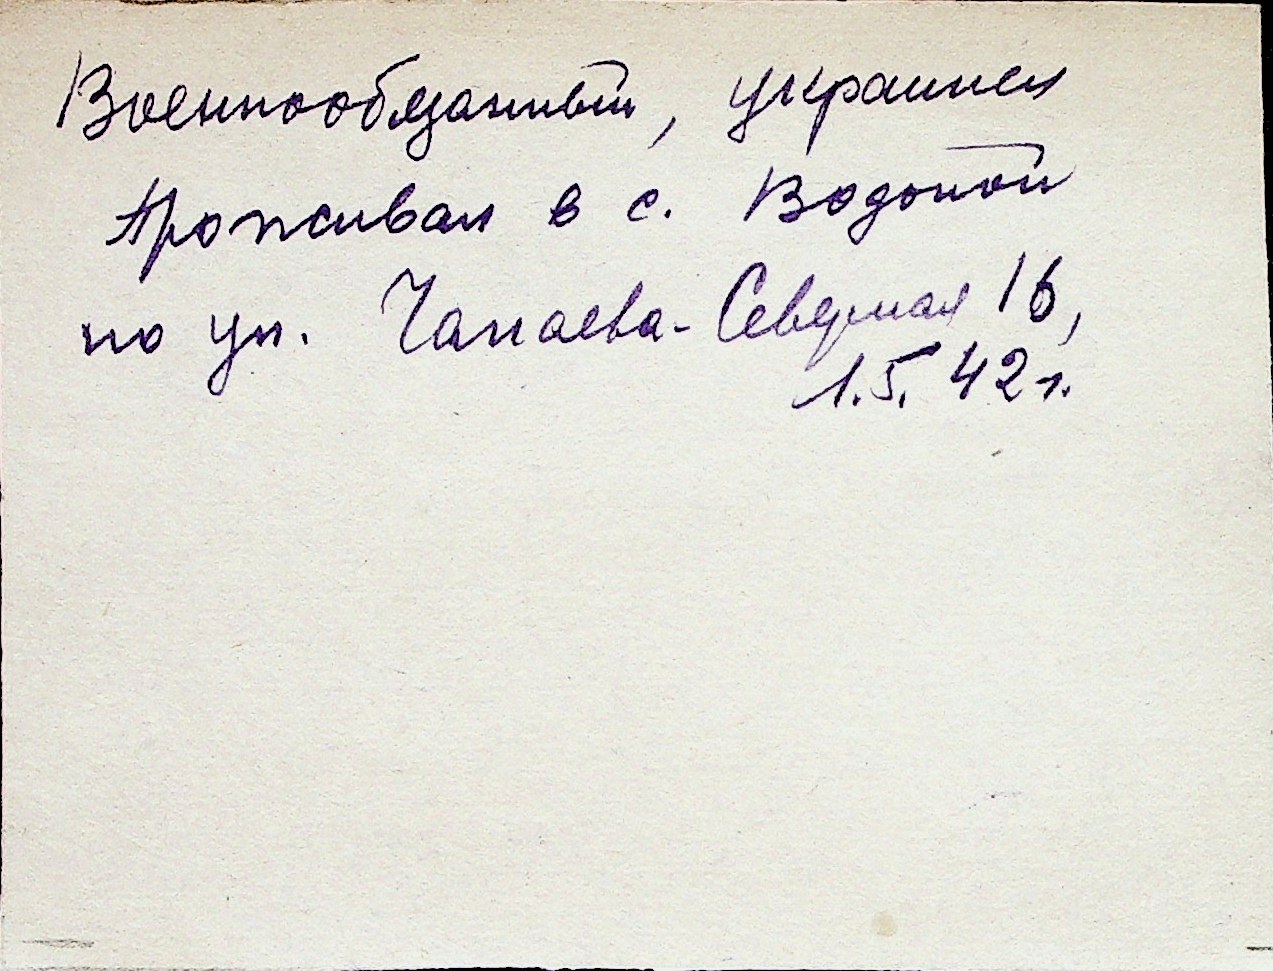 Военнообязанный, украинец
Проживал в с. Водопой
по ул. Чапаева-Северная 16,
1.5.42 г.